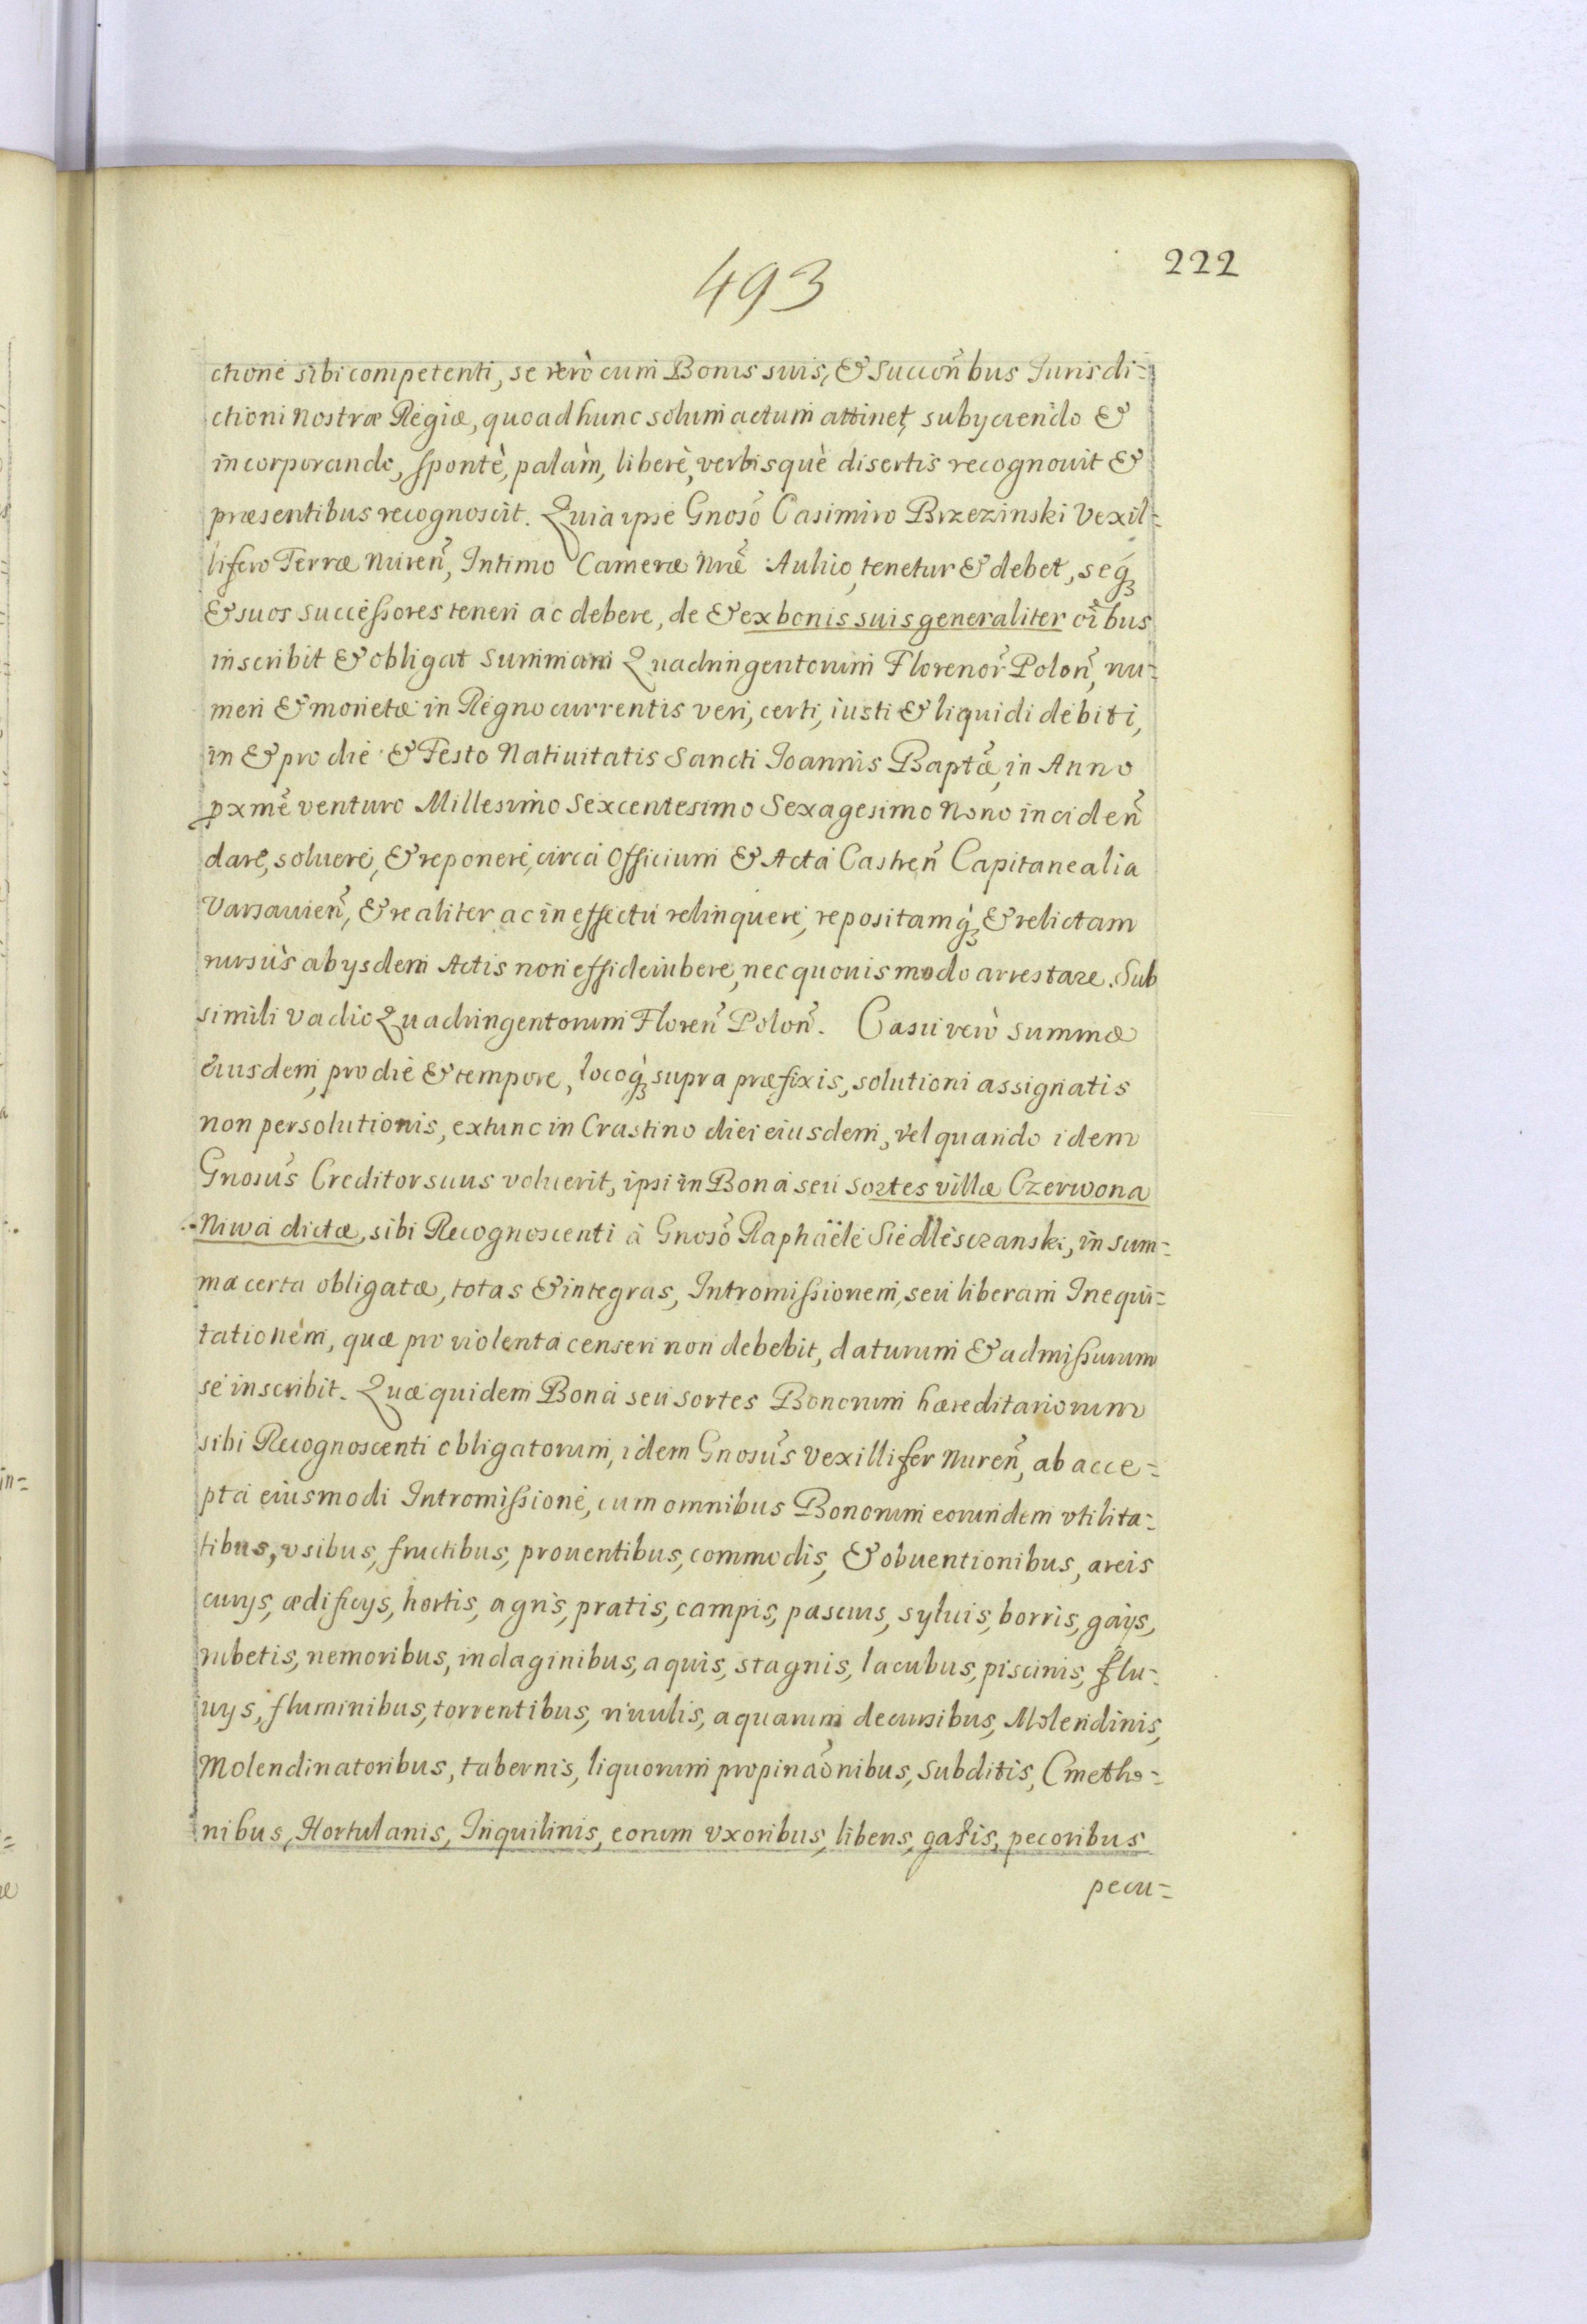 493
222
ctione sibi competenti, se verò cum Bonis suis, & succoñbus Jurisdi=
ctioni nostræ Regiæ, quoad hunc solum actum attinet, subyciendo &
incorporando, spontè, palàm, liberè, verbisquè disertis recognouit &
præsentibus recognoscit. Quia ipse Gnosõ Casimiro Brzezinski Vexil=
lifero Terræ Nureñ, Intimo Cameræ Nrẽ Aulico, tenetur & debet, seq́ꝫ
& suos successores teneri ac debere, de & ex bonis suis generaliter oĩbus
inscribit & obligat summam Quadringentorum Florenor̃ Poloñ, nu=
meri & monetæ in Regno currentis veri, certi, iusti & liquidi debiti,
in & pro die & Festo Natiuitatis Sancti Joannis Baptæ̃, in Anno
ꝓxmẽ venturo Millesimo Sexcentesimo Sexagesimo Nono incideñ
dare, soluere, & reponere, circa Officium & Acta Castreñ Capitanealia
Varsauieñ, & realiter ac in effectu relinquere, repositamq́ꝫ & relictam
rursùs ab ysdem Actis non effideiubere, nec quouis modo arrestare. Sub
simili vadio Quadringentorum Floreñ Poloñ. Casu verò summæ
eiusdem, pro die & tempore, locoq́ꝫ supra præfixis, solutioni assignatis
non persolutionis, extunc in Crastino diei eiusdem, vel quando idem
Gnosũs Creditor suus voluerit, ipsi in Bona seu sortes villæ Czerwona
Niwa dictæ, sibi Recognoscenti à Gnosõ Raphaële Siedlesczanski, in sum=
ma certa obligatæ, totas & integras, Intromissionem, seu liberam Inequi=
tationem, quæ pro violenta censeri non debebit, daturum & admissurum
se inscribit. Quæ quidem Bona seu sortes Bonorum hæreditariorum
sibi Recognoscenti obligatorum, idem Gnosũs Vexillifer Nureñ, ab acce=
pta eiusmodi Intromissione, cum omnibus Bonorum eorundem vtilita=
tibus, vsibus, fructibus, prouentibus, commodis, & obuentionibus, areis
curys, ædificys, hortis, agris, pratis, campis, pascuis, syluis, borris, gays,
rubetis, nemoribus, indaginibus, aquis, stagnis, lacubus, piscinis, flu=
uys, fluminibus, torrentibus, riuulis, aquarum decursibus, Molendinis,
Molendinatoribus, tabernis, liquorum propinaõnibus, Subditis, Cmetho=
nibus, Hortulanis, Inquilinis, eorum vxoribus, liberis, gazis, pecoribus
pecu=